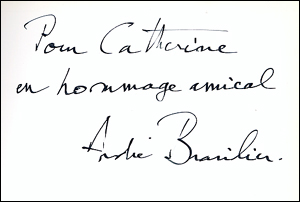 Pour Catherine
en hommage amical
André Brasilier.